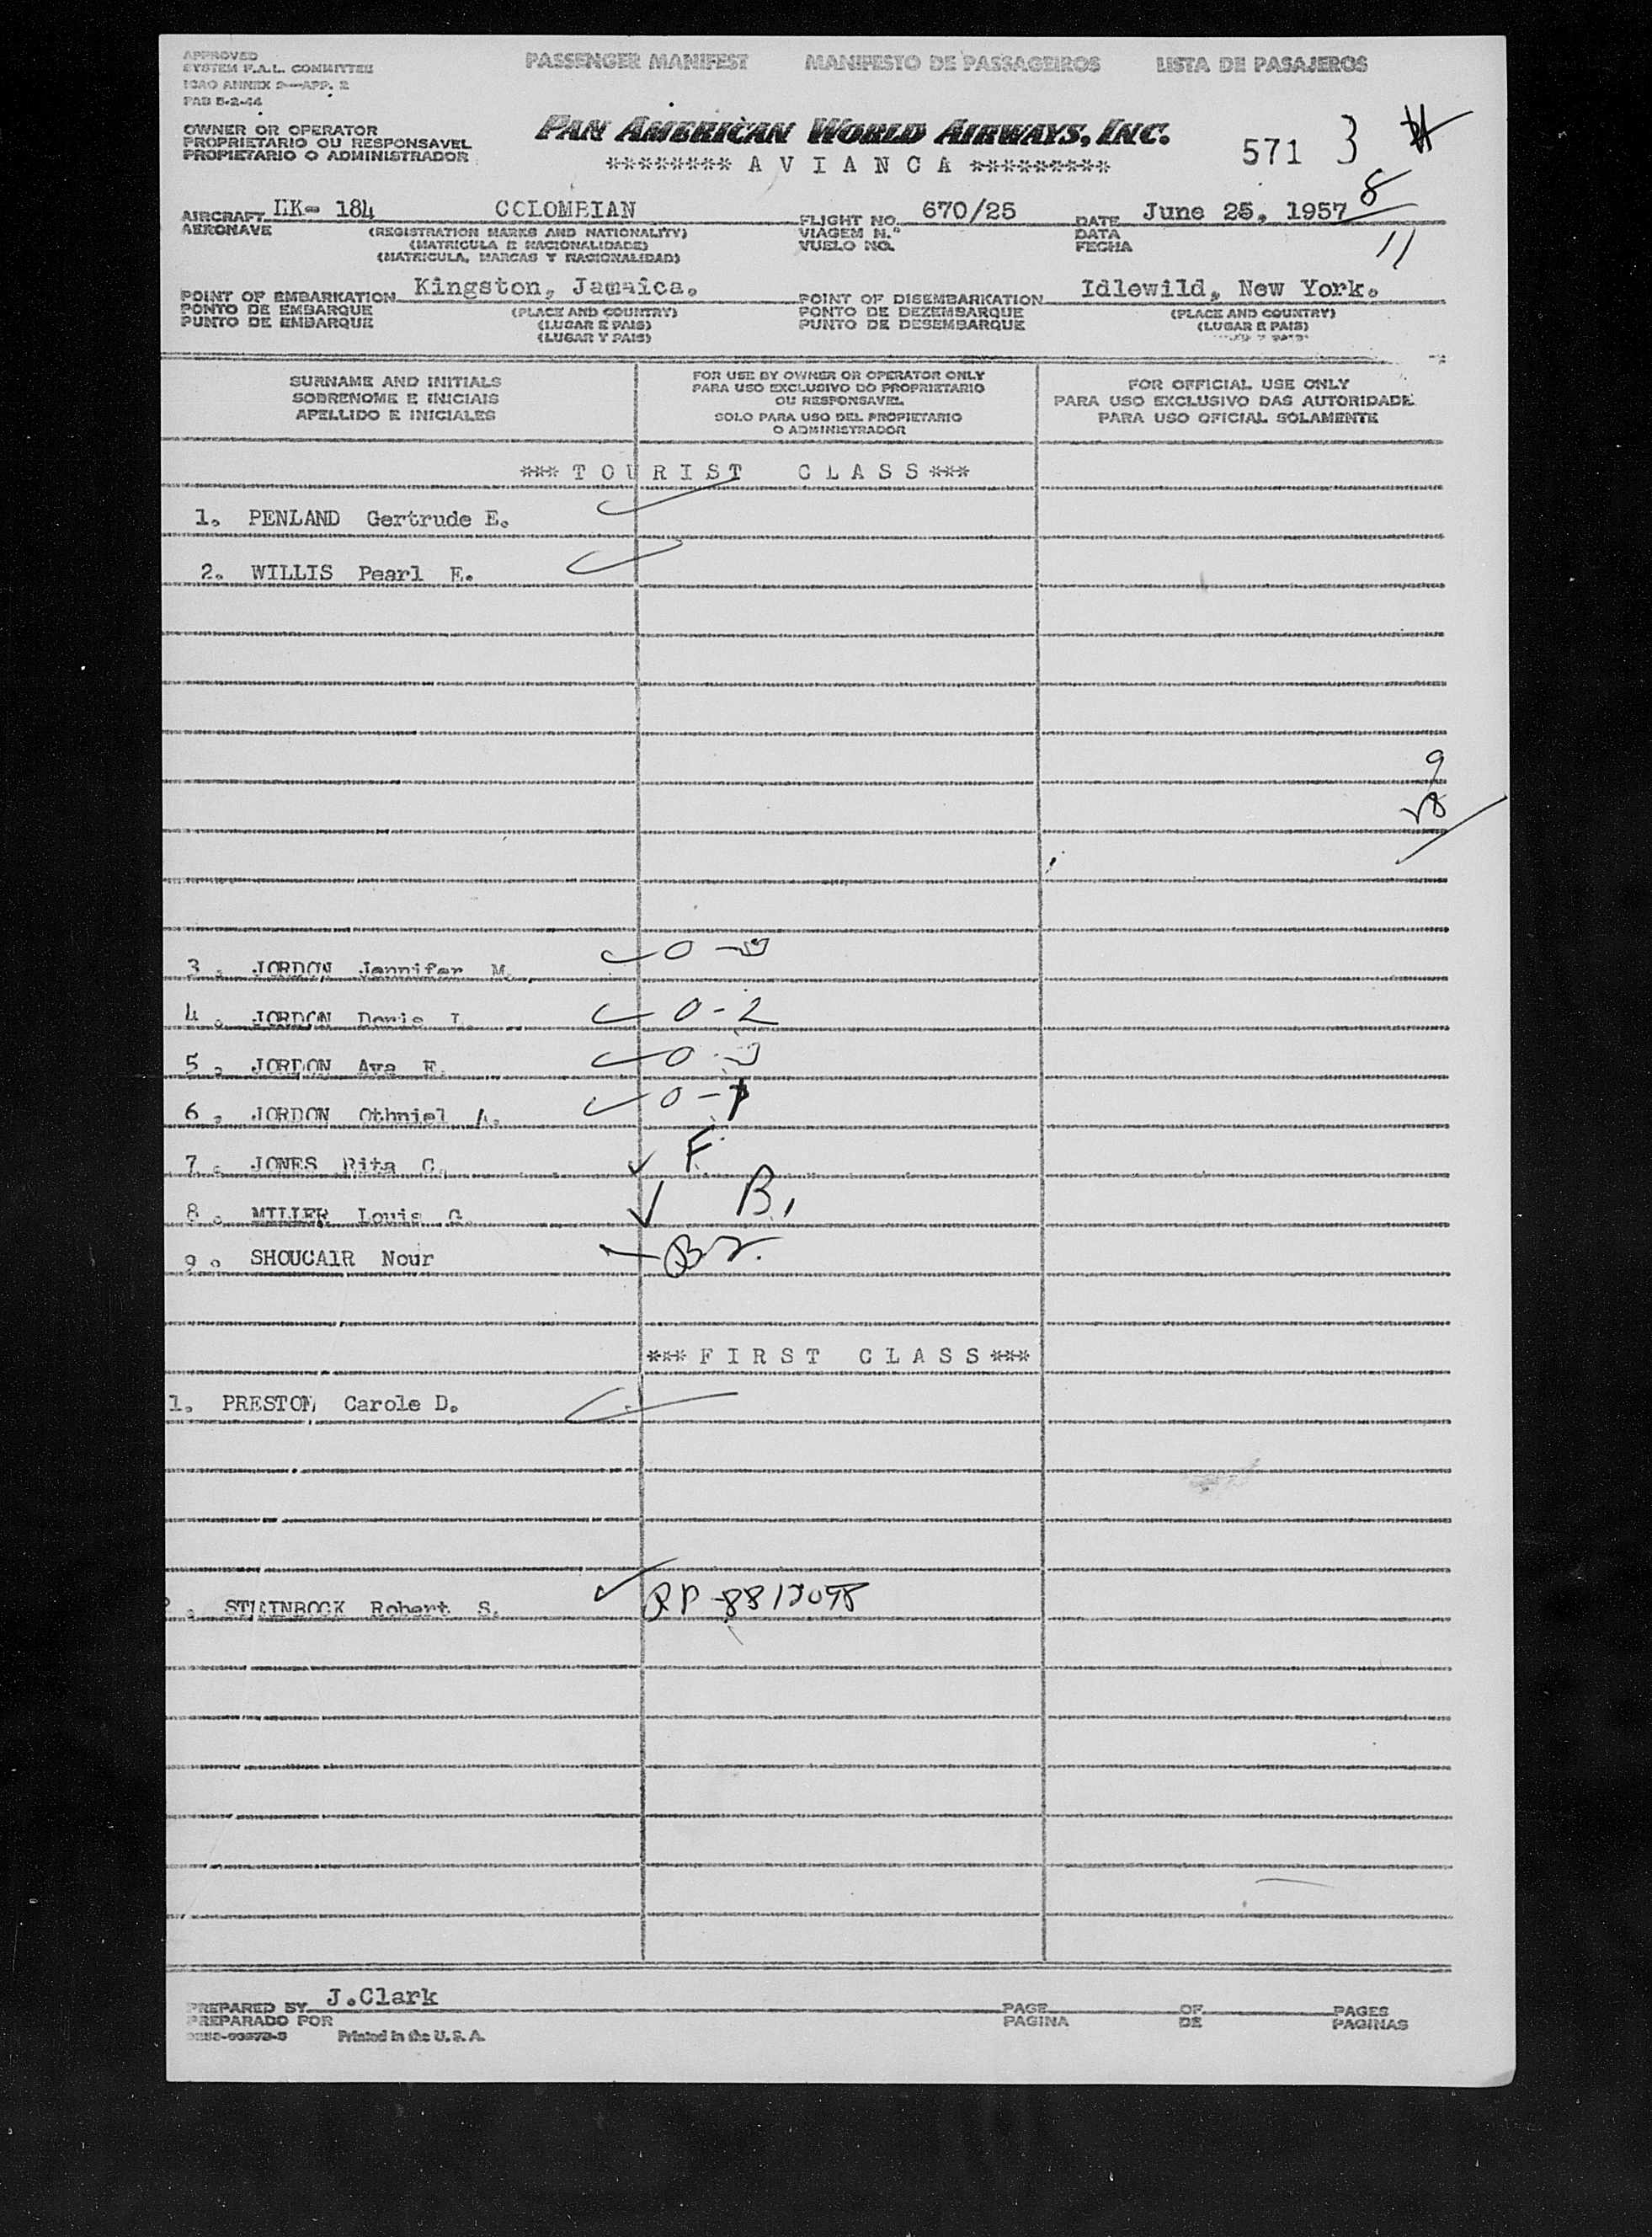 APPROVED
SYSTEM F.A.L. COMMITTEE
ICAO ANNEX 9—APP. 2
PAB 5-2-44
PASSENGER MANIFEST MANIFESTO DE PASSAGEIROS LISTA DE PASAJEROS
OWNER OR OPERATOR
PROPRIETARIO OU RESPONSAVEL
PROPIETARIO O ADMINISTRADOR
PAN AMERICAN WORLD AIRWAYS, INC.
******** A V I A N C A *********
571 3
8
11
AIRCRAFT HK- 184 COLOMBIAN FLIGHT NO. 670/25 DATE June 25, 1957
AERONAVE (REGISTRATION MARKS AND NATIONALITY) VIAGEM N.º DATA
(MATRICULA E NACIONALIDADE) VUELO NO. FECHA
(MATRICULA, MARCAS Y NACIONALIDAD)
POINT OF EMBARKATION Kingston, Jamaica. POINT OF DISEMBARKATION Idlewild, New York.
PONTO DE EMBARQUE (PLACE AND COUNTRY) PONTO DE DEZEMBARQUE (PLACE AND COUNTRY)
PUNTO DE EMBARQUE (LUGAR E PAIS) PUNTO DE DESEMBARQUE (LUGAR E PAIS)
(LUGAR Y PAIS)
SURNAME AND INITIALS
SOBRENOME E INICIAIS
APELLIDO E INICIALES
FOR USE BY OWNER OR OPERATOR ONLY
PARA USO EXCLUSIVO DO PROPRIETARIO
OU RESPONSAVEL
SOLO PARA USO DEL PROPIETARIO
O ADMINISTRADOR
FOR OFFICIAL USE ONLY
PARA USO EXCLUSIVO DAS AUTORIDADE
PARA USO OFICIAL SOLAMENTE
*** T O U R I S T C L A S S ***
1. PENLAND Gertrude E.
2. WILLIS Pearl E.
9
3. JORDON Jennifer M.
4. JORDON Doris I. 0-2
5. JORDON Ava E.
6. JORDON Othniel A. 0-1
7. JONES Rita C. F
8. MILLER Louis G. B1
9. SHOUCAIR Nour B2.
*** F I R S T C L A S S ***
1. PRESTON Carole D.
STEINBOCK Robert S.
PREPARED BY J.Clark PAGE OF PAGES
PREPARADO POR PAGINA DE PAGINAS
Printed in the U. S. A.